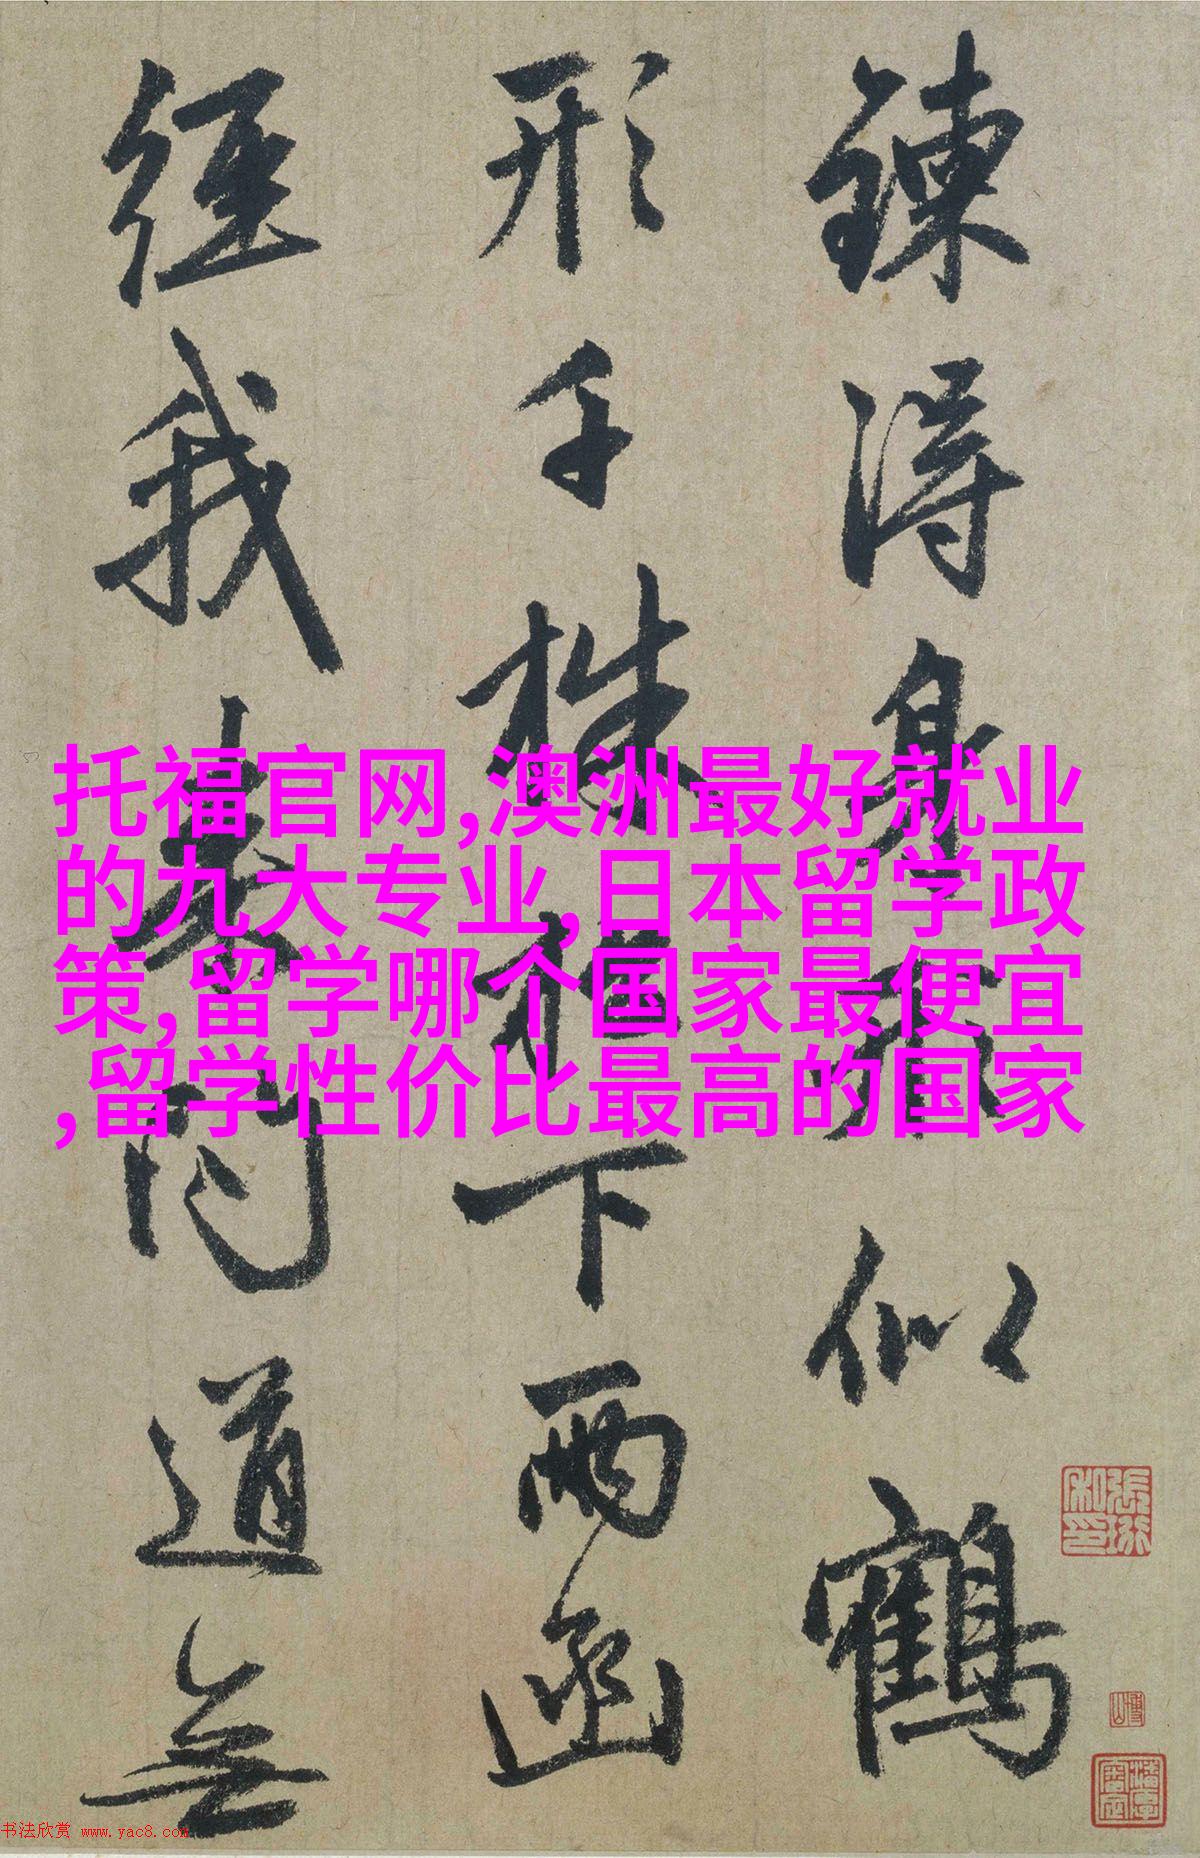 鍊得身形似鶴
形千株松下兩函
經我來問道無
托福官网,澳洲最好就业
的九大专业,日本留学政
策,留学哪个国家最便宜
,留学性价比最高的国家
書法欣赏 www.yac8.com